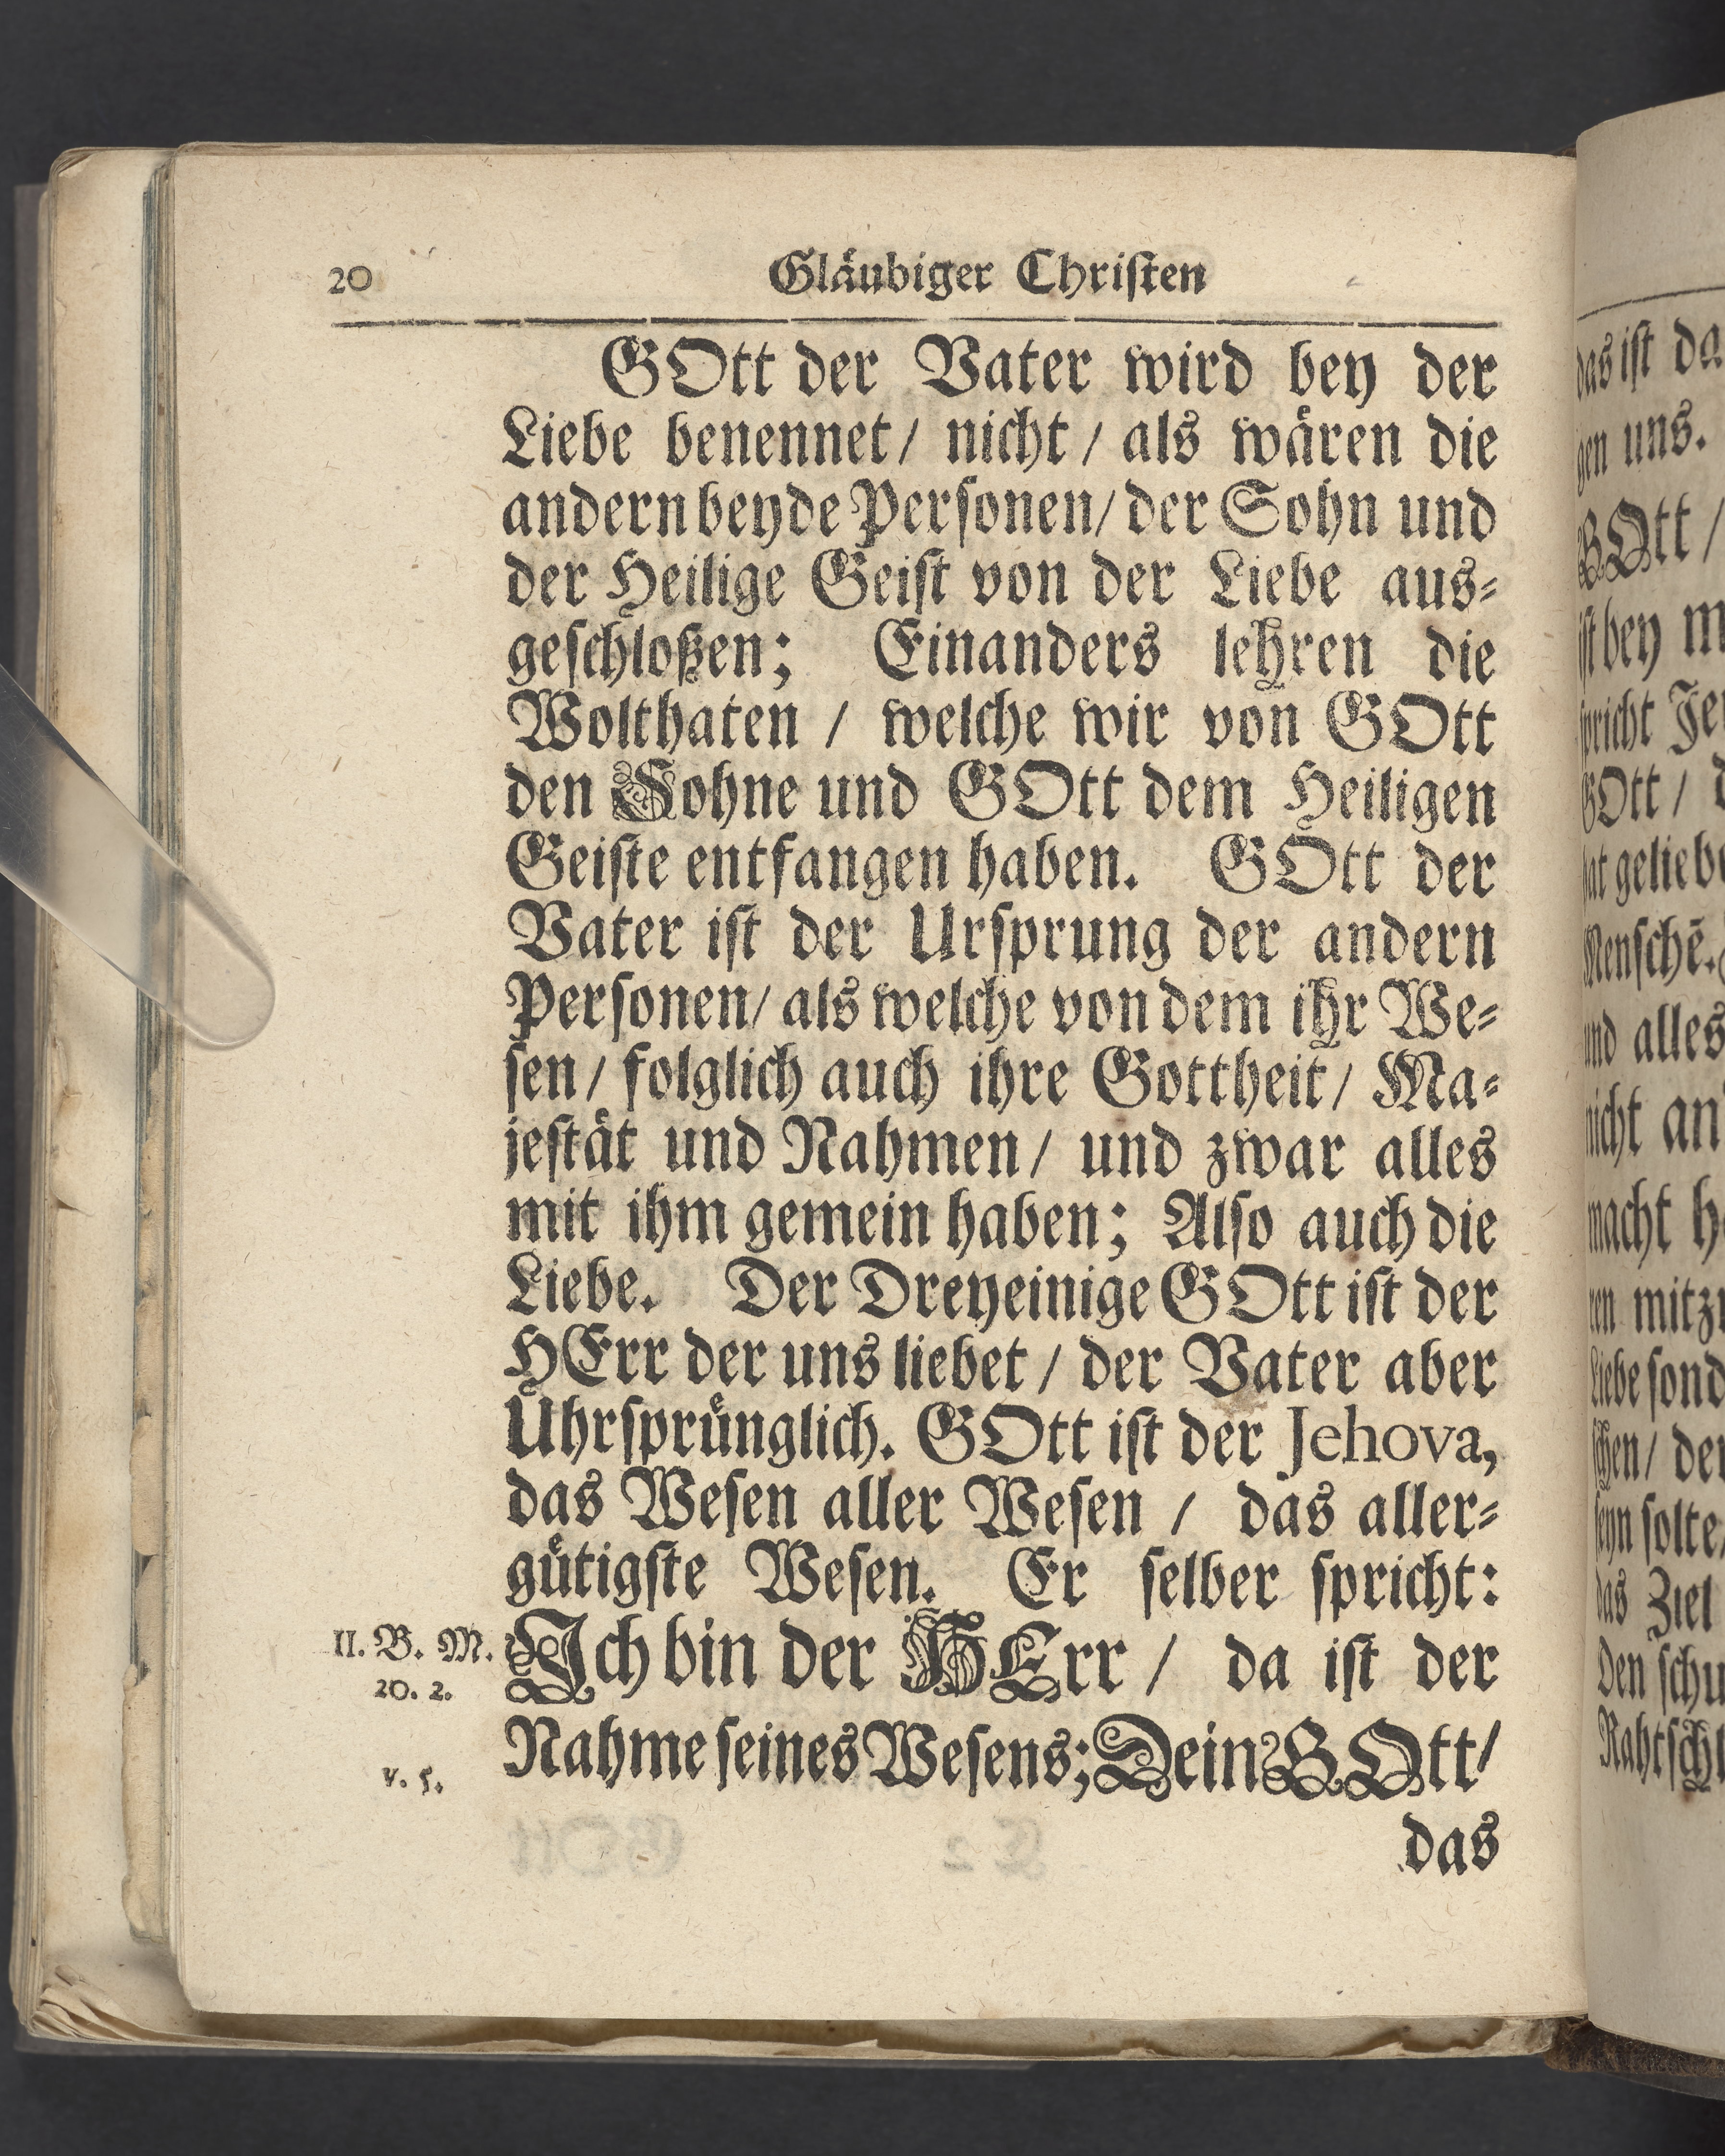 20
Gläubiger Christen
GOtt der Vater wird bey der
Liebe benennet / nicht / als wären die
andern beyde Personen / der Sohn und
der Heilige Geist von der Liebe aus-
geschloßen; Einanders lehren die
Wolthaten / welche wir von GOtt
den Sohne und GOtt dem Heiligen
Geiste entfangen haben. GOtt der
Vater ist der Ursprung der andern
Personen / als welche von dem ihr We-
sen / folglich auch ihre Gottheit / Ma-
jestät und Nahmen / und zwar alles
mit ihm gemein haben; Also auch die
Liebe. Der Dreyeinige GOtt ist der
HErr der uns liebet / der Vater aber
Uhrsprünglich. GOtt ist der Jehova,
das Wesen aller Wesen / das aller-
gütigste Wesen. Er selber spricht:
II. B. M. Ich bin der HErr / da ist der
20. 2.
Nahme seines Wesens; Dein GOtt /
v. 5.
das
das ist da
gen uns.
GOtt /
ist bey m
spricht Je
GOtt /
hat gelieb
Mensche.
und alles
nicht an
macht h
ren mitz
Liebe sond
schen / de
seyn solte
das Ziel
Den schu
Rahtsch